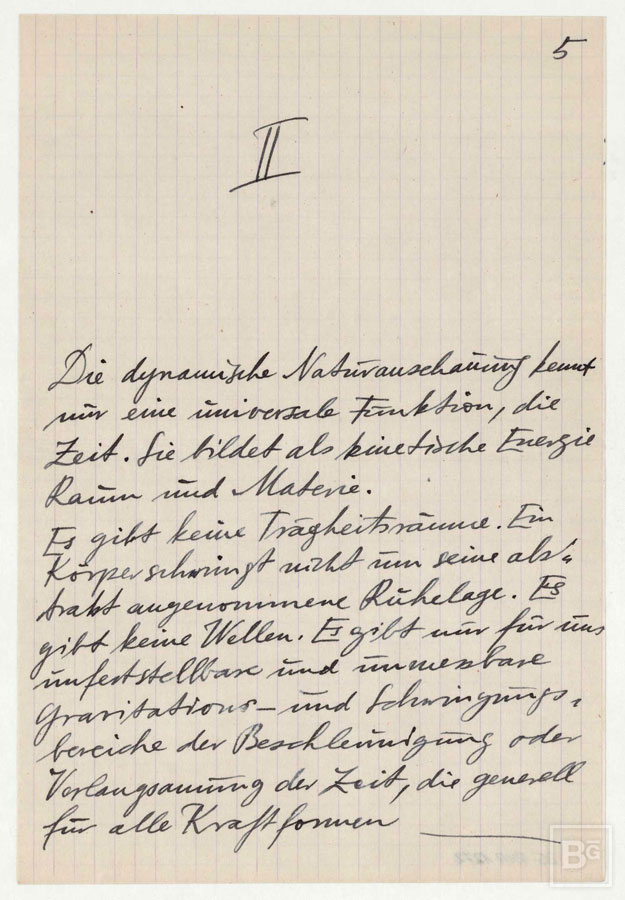 5
II
Die dynamische Naturanschauung kennt
nur eine universale Funktion, die
Zeit. Sie bildet als kinetische Energie
Raum und Materie.
Es gibt keine Trägheitsräume. Ein
Körper schwingt nicht um seine abs-
trakt angenommene Ruhelage. Es
gibt keine Wellen. Es gibt nur für uns
unfeststellbare und unmessbare
Gravitations- und Schwingungs-
bereiche der Beschleunigung oder
Verlangsamung der Zeit, die generell
für alle Kraftformen
BG